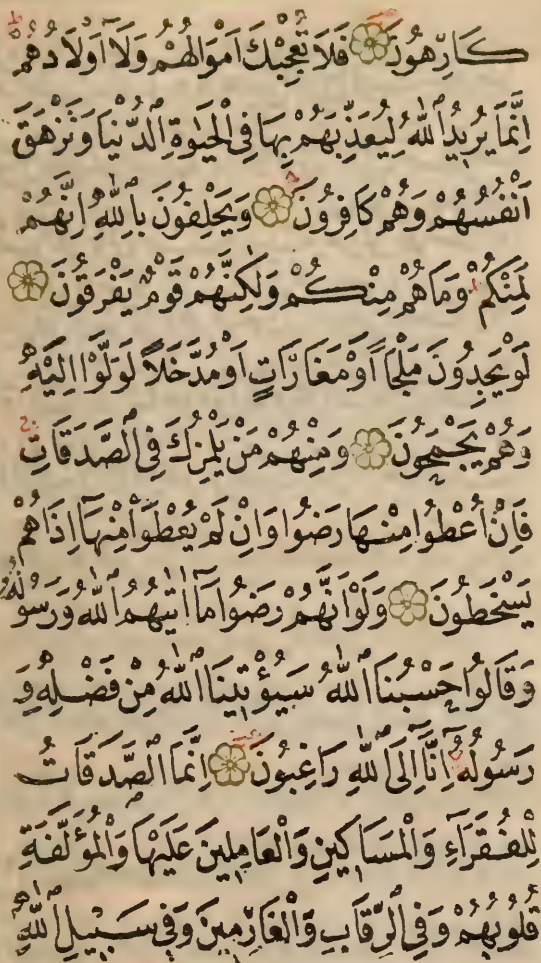 كَارِهُونَ فَلَا تُعْجِبْكَ اَمْوَالُهُمْ وَلَٓا اَوْلَادُهُمْ
اِنَّمَا يُرِيدُ ٱللّٰهُ لِيُعَذِّبَهُمْ بِهَا فِى ٱلْحَيٰوةِ ٱلدُّنْيَا وَتَزْهَقَ
اَنْفُسُهُمْ وَهُمْ كَافِرُونَ وَيَحْلِفُونَ بِاللّٰهِ اِنَّهُمْ
لَمِنْكُمْ وَمَا هُمْ مِنْكُمْ وَلٰكِنَّهُمْ قَوْمٌ يَفْرَقُونَ
لَوْ يَجِدُونَ مَلْجَاً اَوْ مَغَارَاتٍ اَوْ مُدَّخَلاً لَوَلَّوْا اِلَيْهِ
وَهُمْ يَجْمَحُونَ وَمِنْهُمْ مَنْ يَلْمِزُكَ فِى ٱلصَّدَقَاتِ
فَاِنْ اُعْطُوا مِنْهَا رَضُوا وَاِنْ لَمْ يُعْطَوْا مِنْهَٓا اِذَا هُمْ
يَسْخَطُونَ وَلَوْ اَنَّهُمْ رَضُوا مَٓا اٰتٰيهُمُ ٱللّٰهُ وَرَسُولُهُ
وَقَالُوا حَسْبُنَا ٱللّٰهُ سَيُؤْتِينَا ٱللّٰهُ مِنْ فَضْلِهِ وَ
رَسُولُهُ اِنَّٓا اِلَى ٱللّٰهِ رَاغِبُونَ اِنَّمَا ٱلصَّدَقَاتُ
لِلْفُقَرَٓاءِ وَالْمَسَاكِينِ وَالْعَامِلِينَ عَلَيْهَا وَالْمُؤَلَّفَةِ
قُلُوبُهُمْ وَفِى ٱلرِّقَابِ وَالْغَارِمِينَ وَفِى سَبِيلِ ٱللّٰهِ